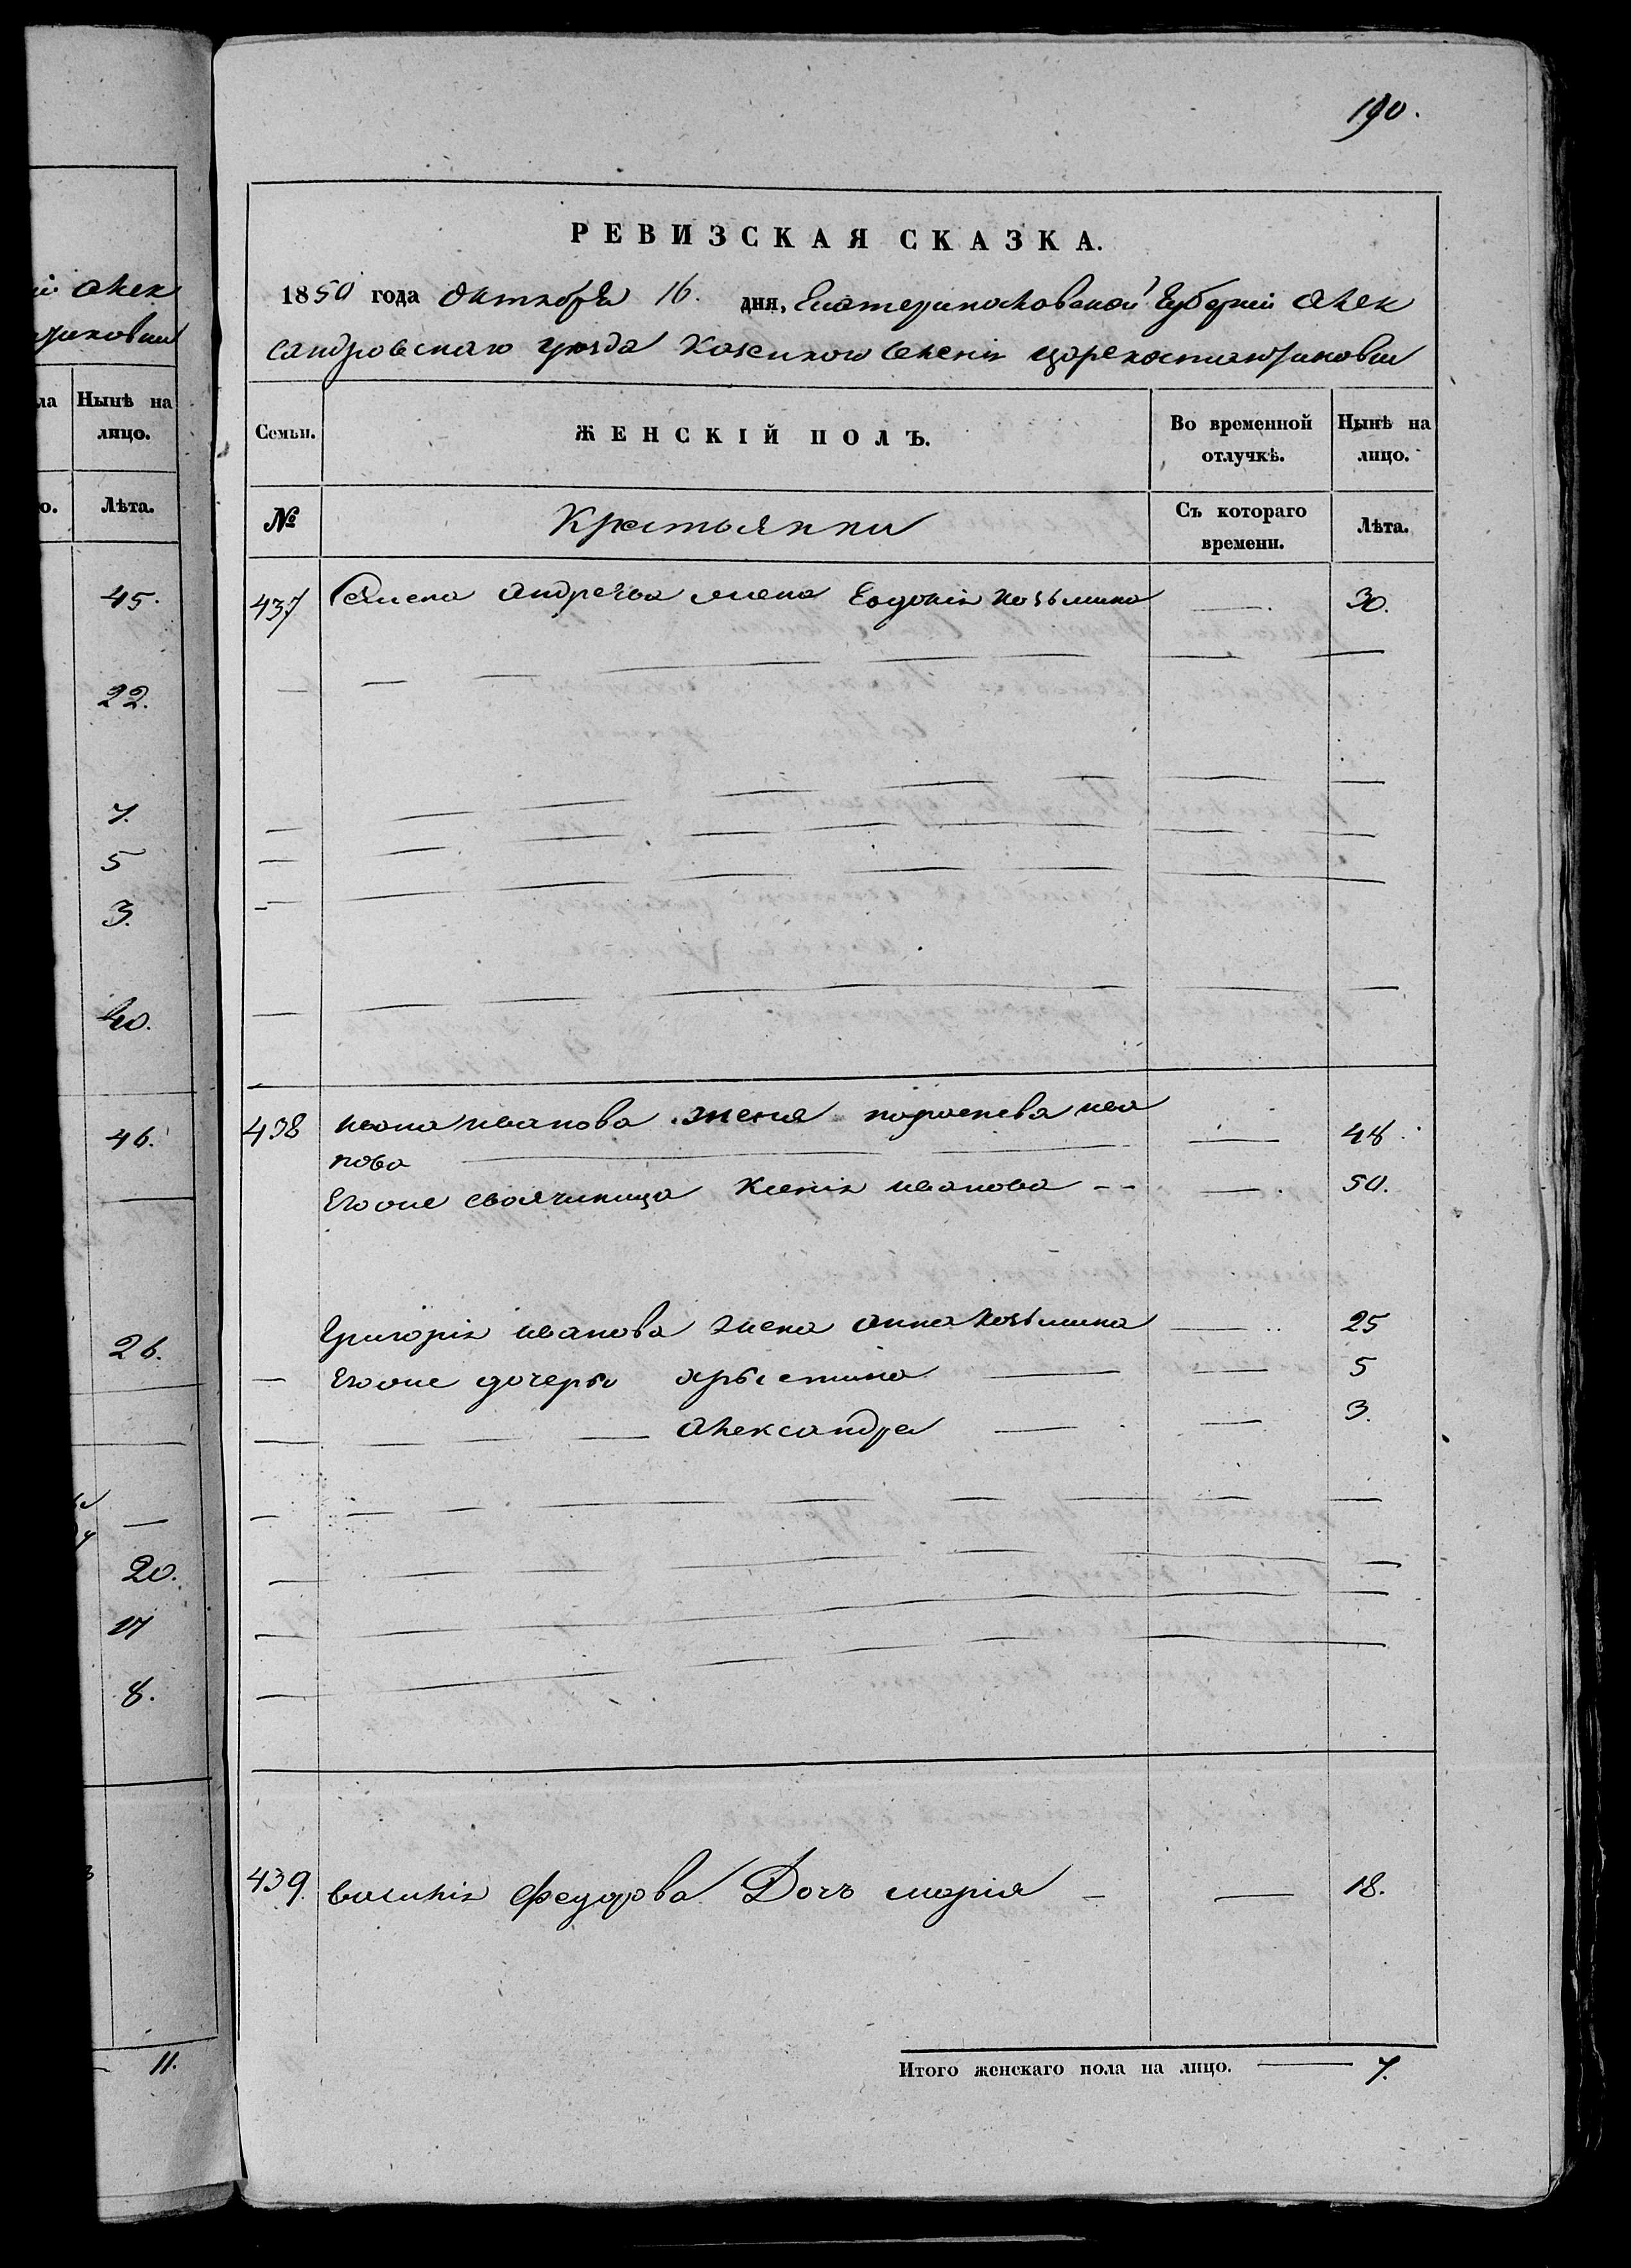 190.
РЕВИЗСКАЯ СКАЗКА.
1850 года Октября 16. дня, Екатеринославской Губернии Алек
сандровскаго уезда Казеннаго Селения Цареконстантиновки
Семьи.
ЖЕНСКІЙ ПОЛЪ.
Во временной отлучкѣ.
Нынѣ на лицо.
№
Крестьянки
Съ котораго времени.
Лѣта.
437 Семена Андреева жена Евдокия Козьмина — 30.
438 Ивана Иванова жена Парасковея Ива — 48.
нова
Его же своячиница Ксения Иванова — 50.
Григория Иванова жена Анна Козьмина — 25
Его же дочеры Христина — 5
Александра — 3.
439. Василия Федорова Дочь Мария — 18.
Итого женскаго пола на лицо. — 7.
Алек
Нынѣ на лицо.
Лѣта.
45.
22.
7.
5
3.
40.
46.
26.
20.
17
8.
11.